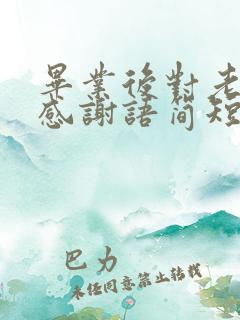 畢業後對老
感謝語简短
巴力
未经同意禁止转载